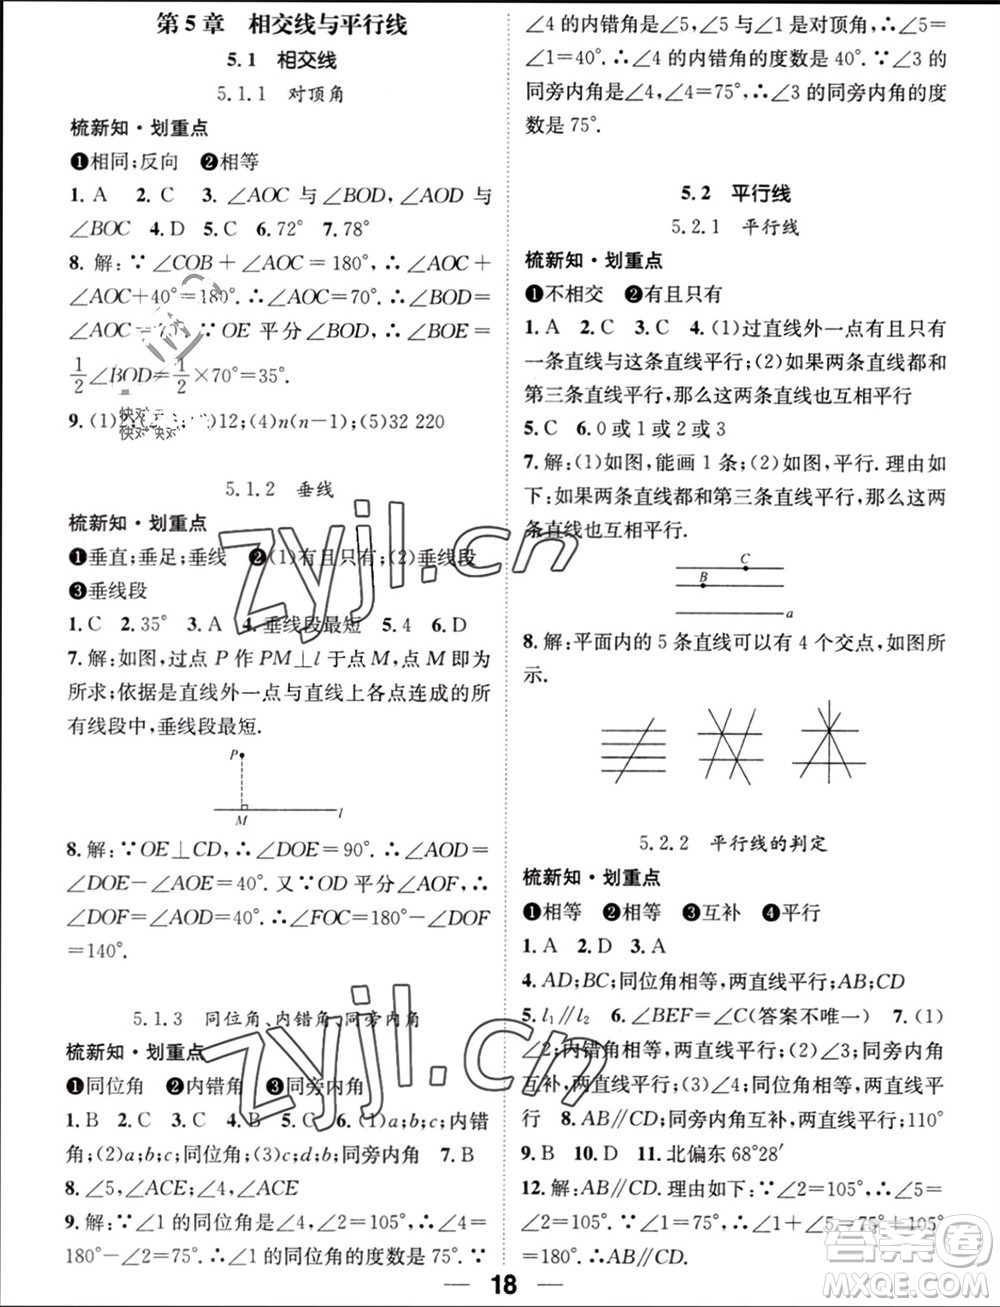 第 5 章　相交线与平行线
5.1　相交线
5.1.1　对顶角
梳新知·划重点
❶相同;反向　❷相等
1. A　2. C　3. ∠AOC 与∠BOD,∠AOD 与
∠BOC　4. D　5. C　6. 72°　7. 78°
8. 解:∵∠COB+∠AOC=180°,∴∠AOC+
∠AOC+40°=180°.∴∠AOC=70°.∴∠BOD=
∠AOC=70°. ∵OE 平分∠BOD,∴∠BOE=
1/2∠BOD=1/2×70°=35°.
9. (1)2;(2) 12;(4)n(n-1);(5)32 220
5.1.2　垂线
梳新知·划重点
❶垂直;垂足;垂线　❷(1)有且只有;(2)垂线段
❸垂线段
1. C　2. 35°　3. A　4. 垂线段最短　5. 4　6. D
7. 解:如图,过点 P 作 PM⊥l 于点 M,点 M 即为
所求;依据是直线外一点与直线上各点连成的所
有线段中,垂线段最短.
P
M
l
8. 解:∵OE⊥CD,∴∠DOE=90°.∴∠AOD=
∠DOE-∠AOE=40°. 又∵OD 平分∠AOF,∴
∠DOF=∠AOD=40°.∴∠FOC=180°-∠DOF
=140°.
5.1.3　同位角、内错角、同旁内角
梳新知·划重点
❶同位角　❷内错角　❸同旁内角
1. B　2. B　3. C　4. B　5. C　6. (1)a;b;c;内错
角;(2)a;b;c;同位角;(3)c;d;b;同旁内角　7. B
8. ∠5,∠ACE;∠4;∠5,∠ACE
9. 解:∵∠1 的同位角是∠4,∠2=105°,∴∠4=
180°-∠2=75°.∴∠1 的同位角的度数是 75°. ∵
∠4 的内错角是∠5,∠5 与∠1 是对顶角,∴∠5=
∠1=40°.∴∠4 的内错角的度数是 40°. ∵∠3 的
同旁内角是∠4,∠4=75°,∴∠3 的同旁内角的度
数是 75°.
5.2　平行线
5.2.1　平行线
梳新知·划重点
❶不相交　❷有且只有
1. A　2. C　3. C　4. (1)过直线外一点有且只有
一条直线与这条直线平行;(2)如果两条直线都和
第三条直线平行,那么这两条直线也互相平行
5. C　6. 0 或 1 或 2 或 3
7. 解:(1)如图,能画 1 条;(2)如图,平行. 理由如
下:如果两条直线都和第三条直线平行,那么这两
条直线也互相平行.
C
B
a
8. 解:平面内的 5 条直线可以有 4 个交点,如图所
示.
5.2.2　平行线的判定
梳新知·划重点
❶相等　❷相等　❸互补　❹平行
1. A　2. D　3. A
4. AD;BC;同位角相等,两直线平行;AB;CD
5. l₁∥l₂　6. ∠BEF=∠C(答案不唯一)　7. (1)
∠2;内错角相等,两直线平行;(2)∠3;同旁内角
互补,两直线平行;(3)∠4;同位角相等,两直线平
行　8. AB∥CD;同旁内角互补,两直线平行;110°
9. B　10. D　11. 北偏东 68°28′
12. 解:AB∥CD. 理由如下:∵∠2=105°,∴∠4=
∠2=105°. ∵∠1=75°,∴∠1+∠4=75°+105°
=180°.∴AB∥CD.
18
zyjl.cn
zyjl.cn
答案圈
MXQE.COM